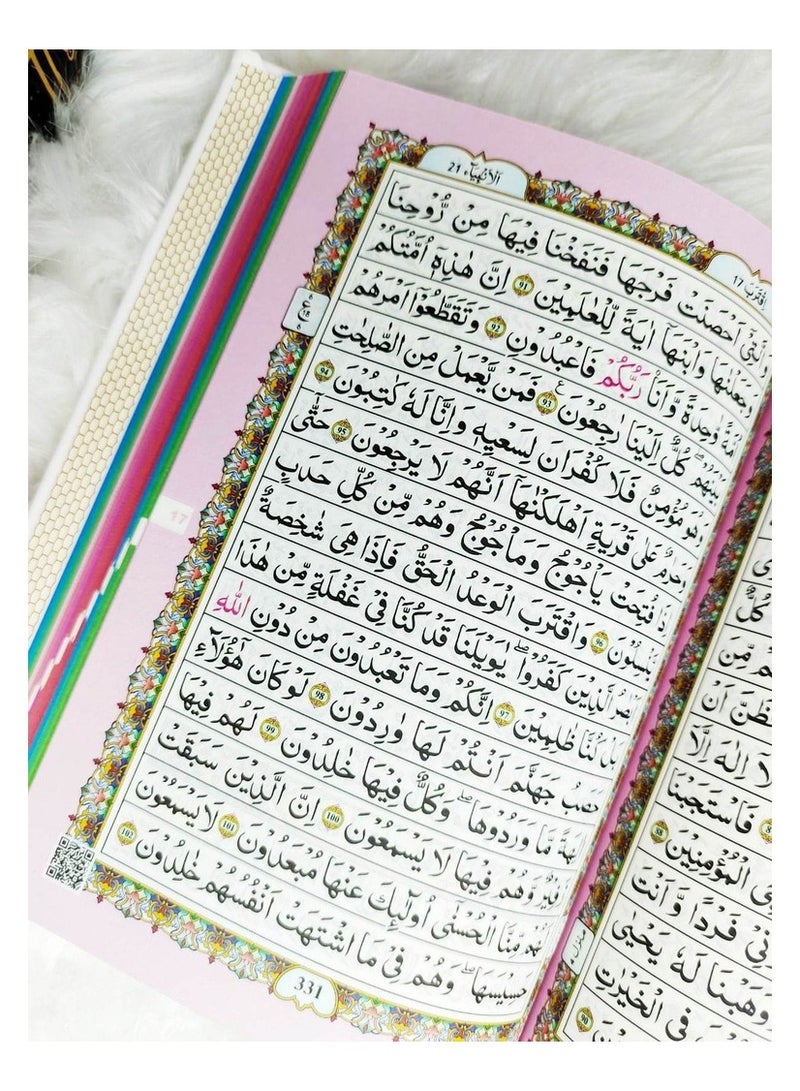 اِقْتَرَبَ 17
اَلْاَنْۢبِيَآء 21
وَالَّتِيْٓ اَحْصَنَتْ فَرْجَهَا فَنَفَخْنَا فِيْهَا مِنْ رُّوْحِنَا
وَجَعَلْنٰهَا وَابْنَهَآ اٰيَةً لِّلْعٰلَمِيْنَ 91 اِنَّ هٰذِهٖٓ اُمَّتُكُمْ
اُمَّةً وَّاحِدَةً وَّاَنَا رَبُّكُمْ فَاعْبُدُوْنِ 92 وَتَقَطَّعُوْٓا اَمْرَهُمْ
بَيْنَهُمْ كُلٌّ اِلَيْنَا رٰجِعُوْنَ 93 فَمَنْ يَّعْمَلْ مِنَ الصّٰلِحٰتِ
وَهُوَ مُؤْمِنٌ فَلَا كُفْرَانَ لِسَعْيِهٖ وَاِنَّا لَهٗ كٰتِبُوْنَ 94
وَحَرٰمٌ عَلٰى قَرْيَةٍ اَهْلَكْنٰهَآ اَنَّهُمْ لَا يَرْجِعُوْنَ 95 حَتّٰٓى
اِذَا فُتِحَتْ يَاْجُوْجُ وَمَاْجُوْجُ وَهُمْ مِّنْ كُلِّ حَدَبٍ
يَّنْسِلُوْنَ 96 وَاقْتَرَبَ الْوَعْدُ الْحَقُّ فَاِذَا هِيَ شَاخِصَةٌ
اَبْصَارُ الَّذِيْنَ كَفَرُوْا ؕ يٰوَيْلَنَا قَدْ كُنَّا فِيْ غَفْلَةٍ مِّنْ هٰذَا
بَلْ كُنَّا ظٰلِمِيْنَ 97 اِنَّكُمْ وَمَا تَعْبُدُوْنَ مِنْ دُوْنِ اللّٰهِ
حَصَبُ جَهَنَّمَ اَنْتُمْ لَهَا وٰرِدُوْنَ 98 لَوْ كَانَ هٰٓؤُلَآءِ
اٰلِهَةً مَّا وَرَدُوْهَا ؕ وَكُلٌّ فِيْهَا خٰلِدُوْنَ 99 لَهُمْ فِيْهَا
زَفِيْرٌ وَّهُمْ فِيْهَا لَا يَسْمَعُوْنَ 100 اِنَّ الَّذِيْنَ سَبَقَتْ
لَهُمْ مِّنَّا الْحُسْنٰٓى اُولٰٓئِكَ عَنْهَا مُبْعَدُوْنَ 101 لَا يَسْمَعُوْنَ
حَسِيْسَهَا ؕ وَهُمْ فِيْ مَا اشْتَهَتْ اَنْفُسُهُمْ خٰلِدُوْنَ 102
331
6
ع
18
6
17
كُلٌّ
مِّنَ
اَنْ
لَآ اِلٰهَ اِلَّآ
فَاسْتَجَبْنَا
الْمُؤْمِنِيْنَ 88
فَرْدًا وَّاَنْتَ
وَوَهَبْنَا لَهٗ يَحْيٰى
فِي الْخَيْرٰتِ
90